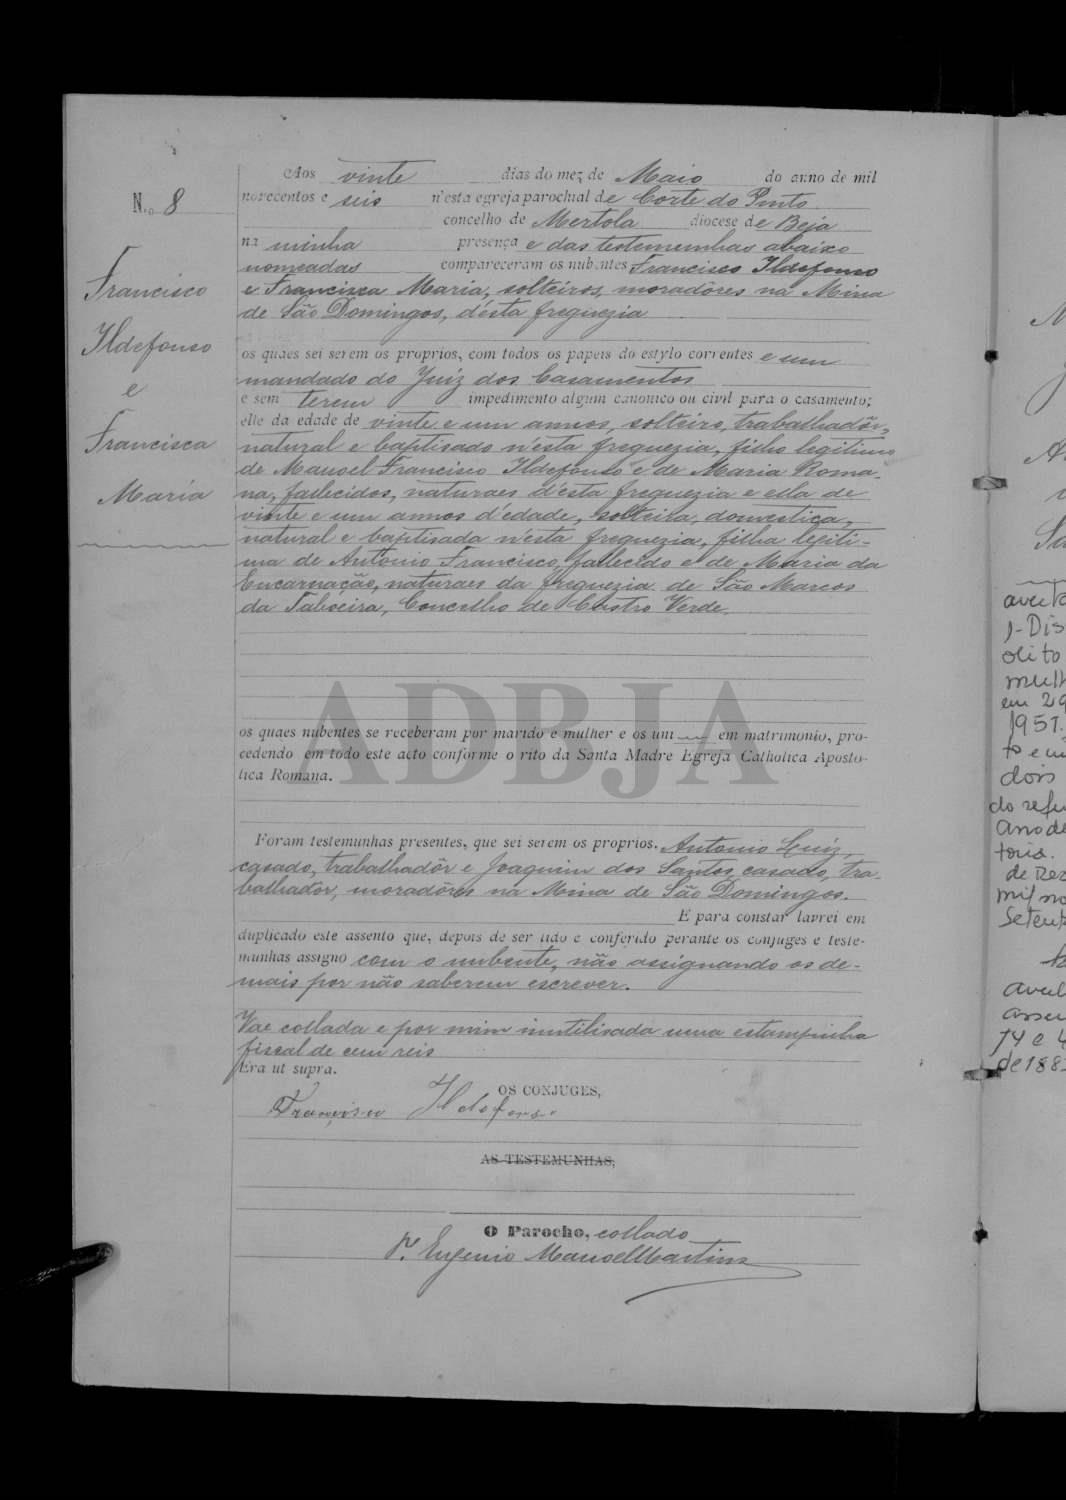 N.o 8
Francisco
Ildefonso
e
Francisca
Maria
Aos vinte dias do mez de Maio do anno de mil
novecentos e seis n'esta egreja parochial de Corte do Pinto
concelho de Mertola diocese de Beja
na minha presença e das testemunhas abaixo
nomeadas compareceram os nubentes Francisco Ildefonso
e Francisca Maria, solteiros, moradôres na Mina
de São Domingos, d'ésta freguezia
os quaes sei serem os proprios, com todos os papeis do estylo correntes e um
mandado do Juiz dos Casamentos
e sem terem impedimento algum canonico ou civil para o casamento;
elle da edade de vinte e um annos, solteiro, trabalhadôr,
natural e baptisado n'esta freguezia, filho legitimo
de Manoel Francisco Ildefonso e de Maria Roma-
na, fallecidos, naturaes d'ésta freguezia e ella de
vinte e um annos d'edade, solteira, domestica,
natural e baptisada n'esta freguezia, filha legiti-
ma de Antonio Francisco, fallecido e de Maria da
Encarnação, naturaes da freguezia de São Marcos
da Taboeira, Concelho de Castro Verde.
ADBJA
os quaes nubentes se receberam por marido e mulher e os uni em matrimonio, pro-
cedendo em todo este acto conforme o rito da Santa Madre Egreja Catholica Aposto-
lica Romana.
Foram testemunhas presentes, que sei serem os proprios. Antonio Luiz,
casado, trabalhadôr e Joaquim dos Santos, casado, tra-
balhador, moradôres na Mina de São Domingos.
E para constar lavrei em
duplicado este assento que, depois de ser lido e conferido perante os conjuges e teste-
munhas assigno com o nubente, não assignando os de-
mais por não saberem escrever.
Vae collada e por mim inutilisada uma estampilha
fiscal de cem reis
Era ut supra.
OS CONJUGES,
Francisco Ildefonso
AS TESTEMUNHAS,
O Parocho, collado
P.e Eugenio Manoel Martins
J-Dis
olito
em 29
1951.
dois
do
ano de
toria.
mil
de 188